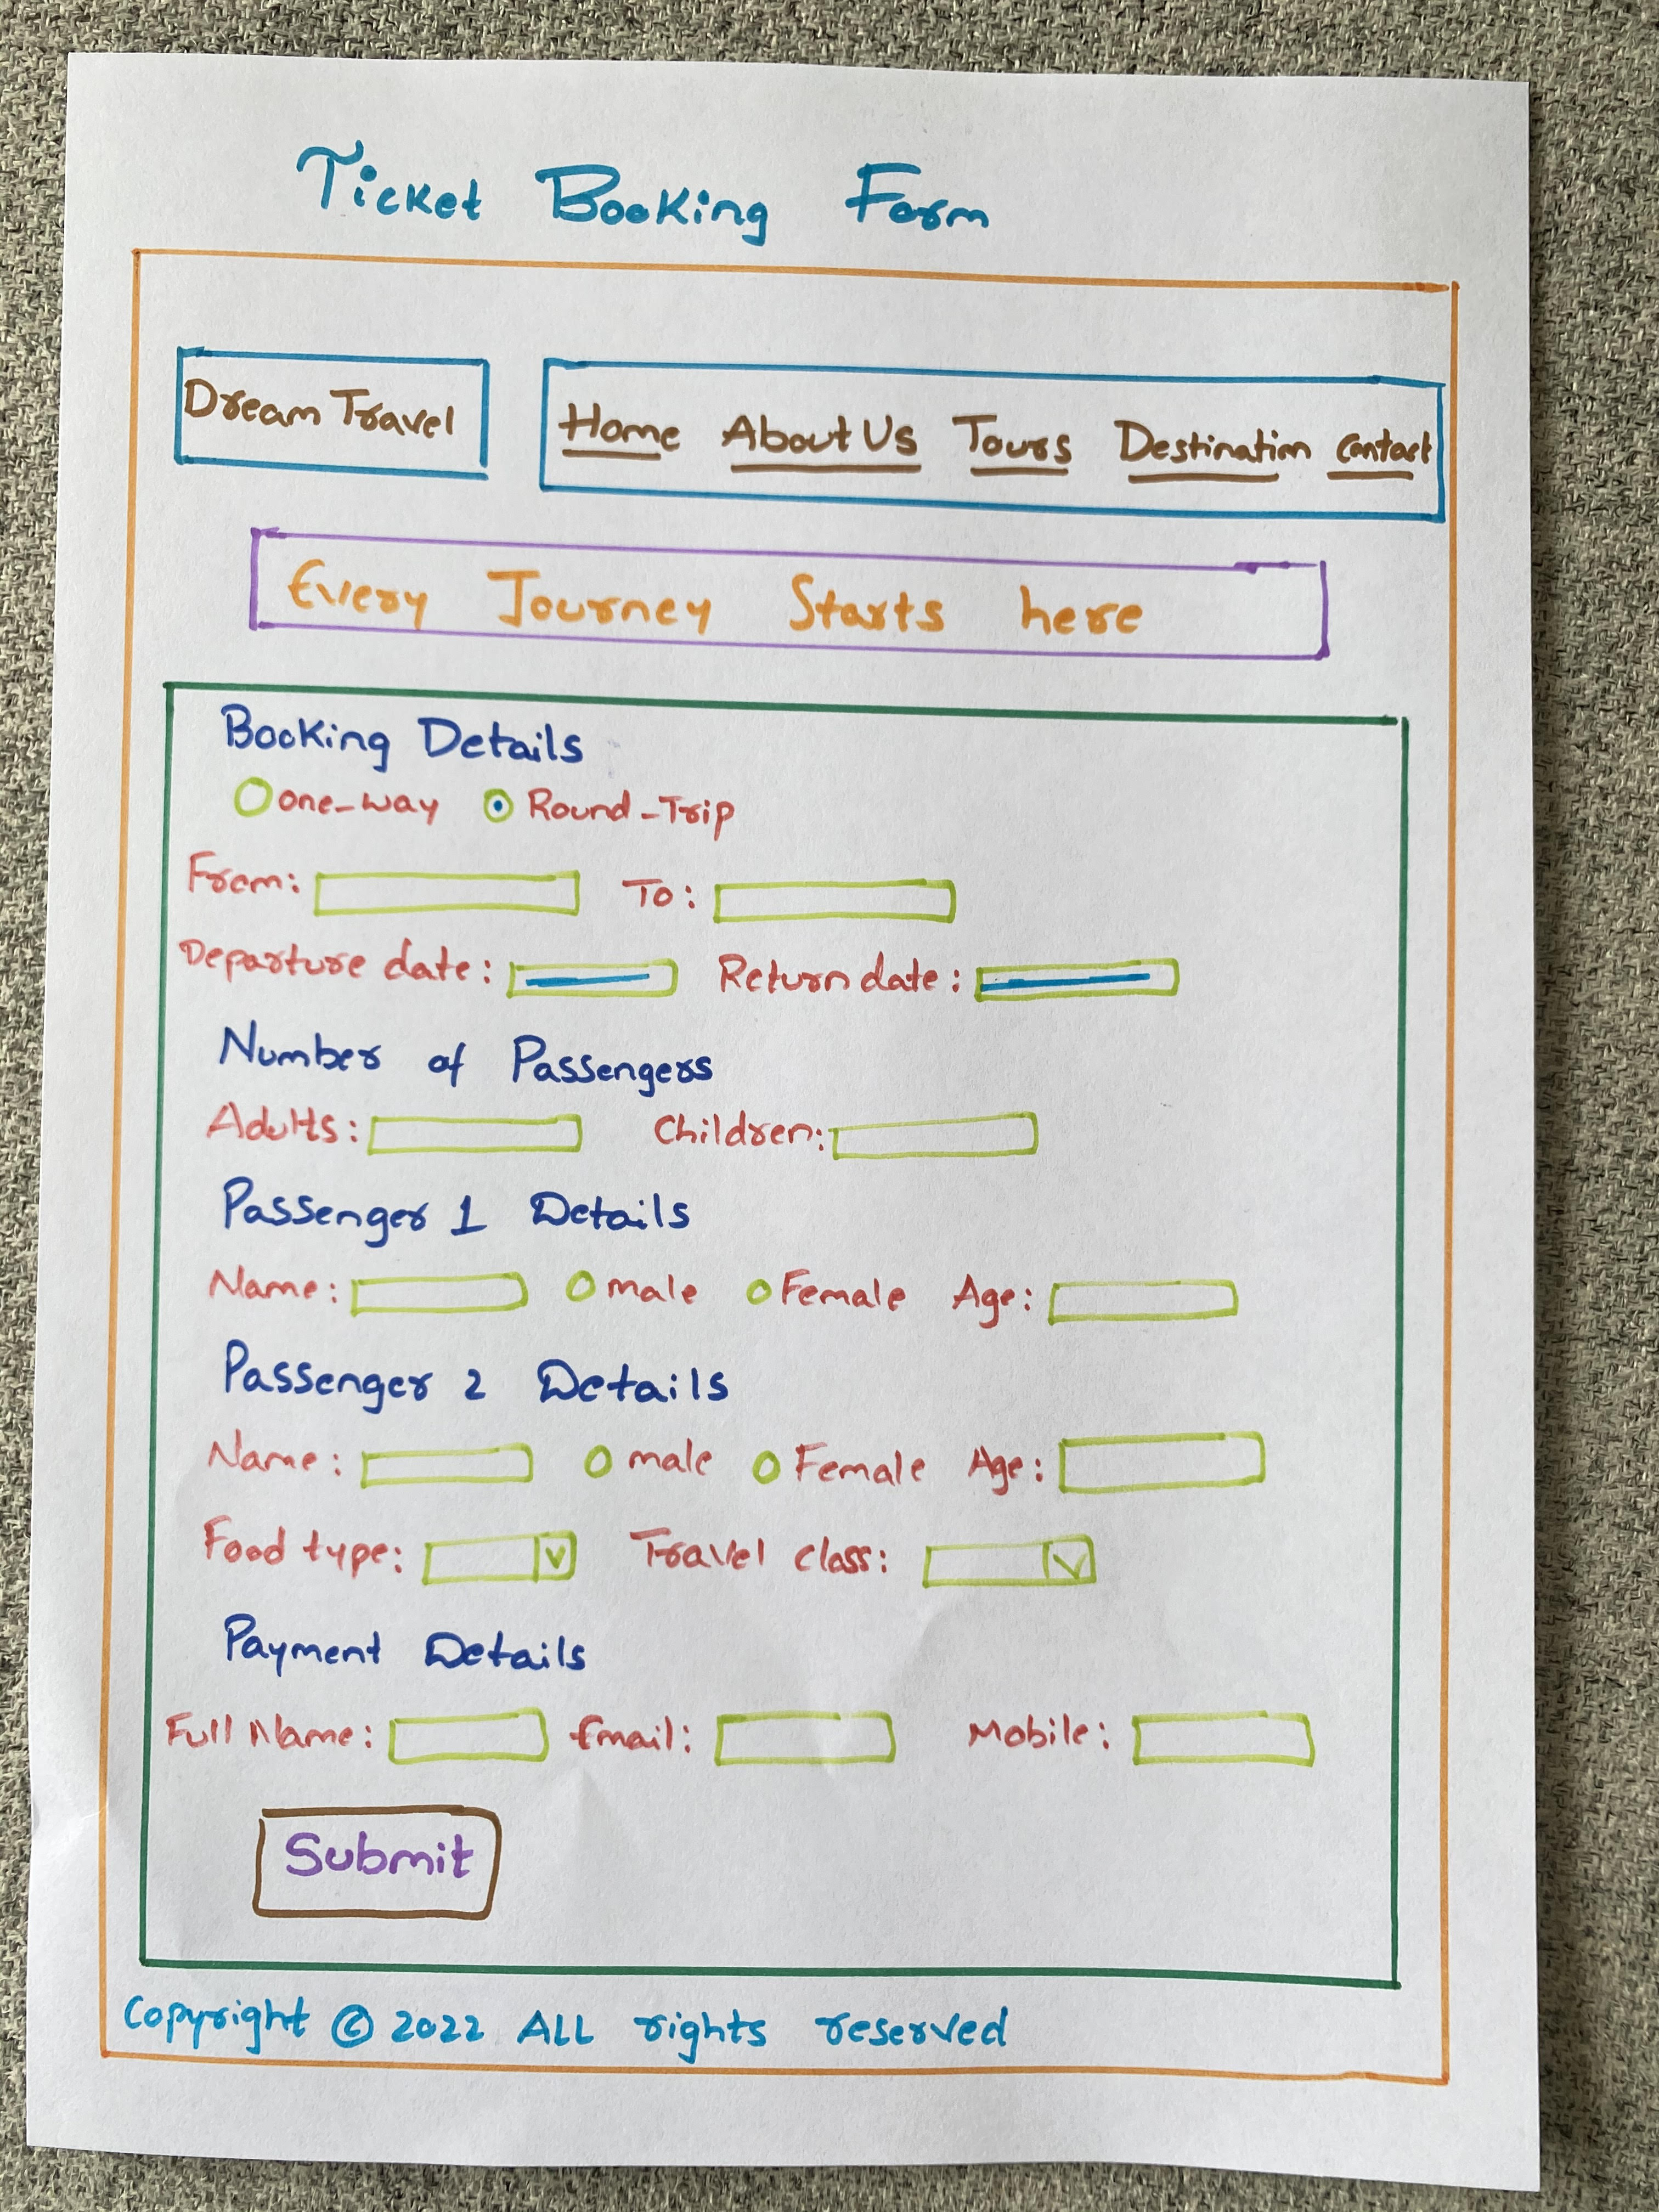 Ticket Booking Form
Dream Travel
Home About Us Tours Destination Contact
Every Journey Starts here
Booking Details
One-way Round-Trip
From: To:
Departure date: Return date:
Number of Passengers
Adults: Children:
Passenger 1 Details
Name: male Female Age:
Passenger 2 Details
Name: male Female Age:
Food type: Travel class:
Payment Details
Full Name: Email: Mobile:
Submit
Copyright © 2022 ALL rights reserved